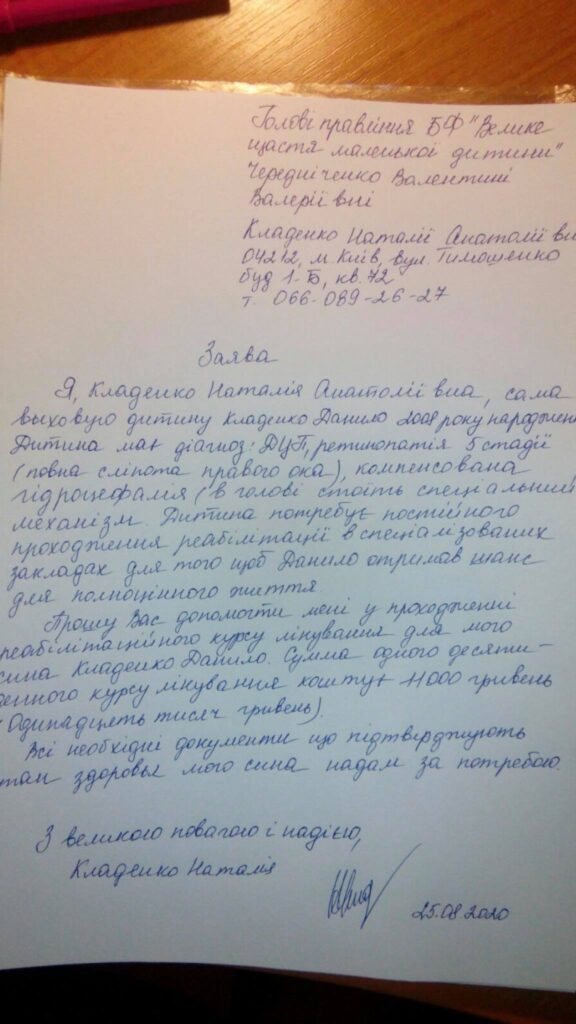 Голові правління БФ "Велике
щастя маленької дитини"
Чередніченко Валентині
Валеріївні
Кладенко Наталії Анатоліївни
04212, м. Київ, вул. Тимошенко
буд 1-Б, кв. 72
т. 066-089-26-27
Заява
Я, Кладенко Наталія Анатоліївна, сама
виховую дитину Кладенко Данило 2008 року народжен
Дитина має діагноз: ДЦП, ретинопатія 5 стадії
(повна сліпота правого ока), компенсована
гідроцефалія (в голові стоїть спеціальний
механізм. Дитина потребує постійного
проходження реабілітації в спеціалізованих
закладах для того щоб Данило отримав шанс
для полноцінного життя.
Прошу Вас допомогти мені у проходженні
реабілітаційного курсу лікування для мого
сина Кладенко Данило. Сумма одного десяти-
денного курсу лікування коштує 11000 гривень
(Одинадцять тисяч гривень).
Всі необхідні документи що підтверджують
стан здоровья мого сина надам за потребою.
З великою повагою і надією,
Кладенко Наталія
25.08.2020